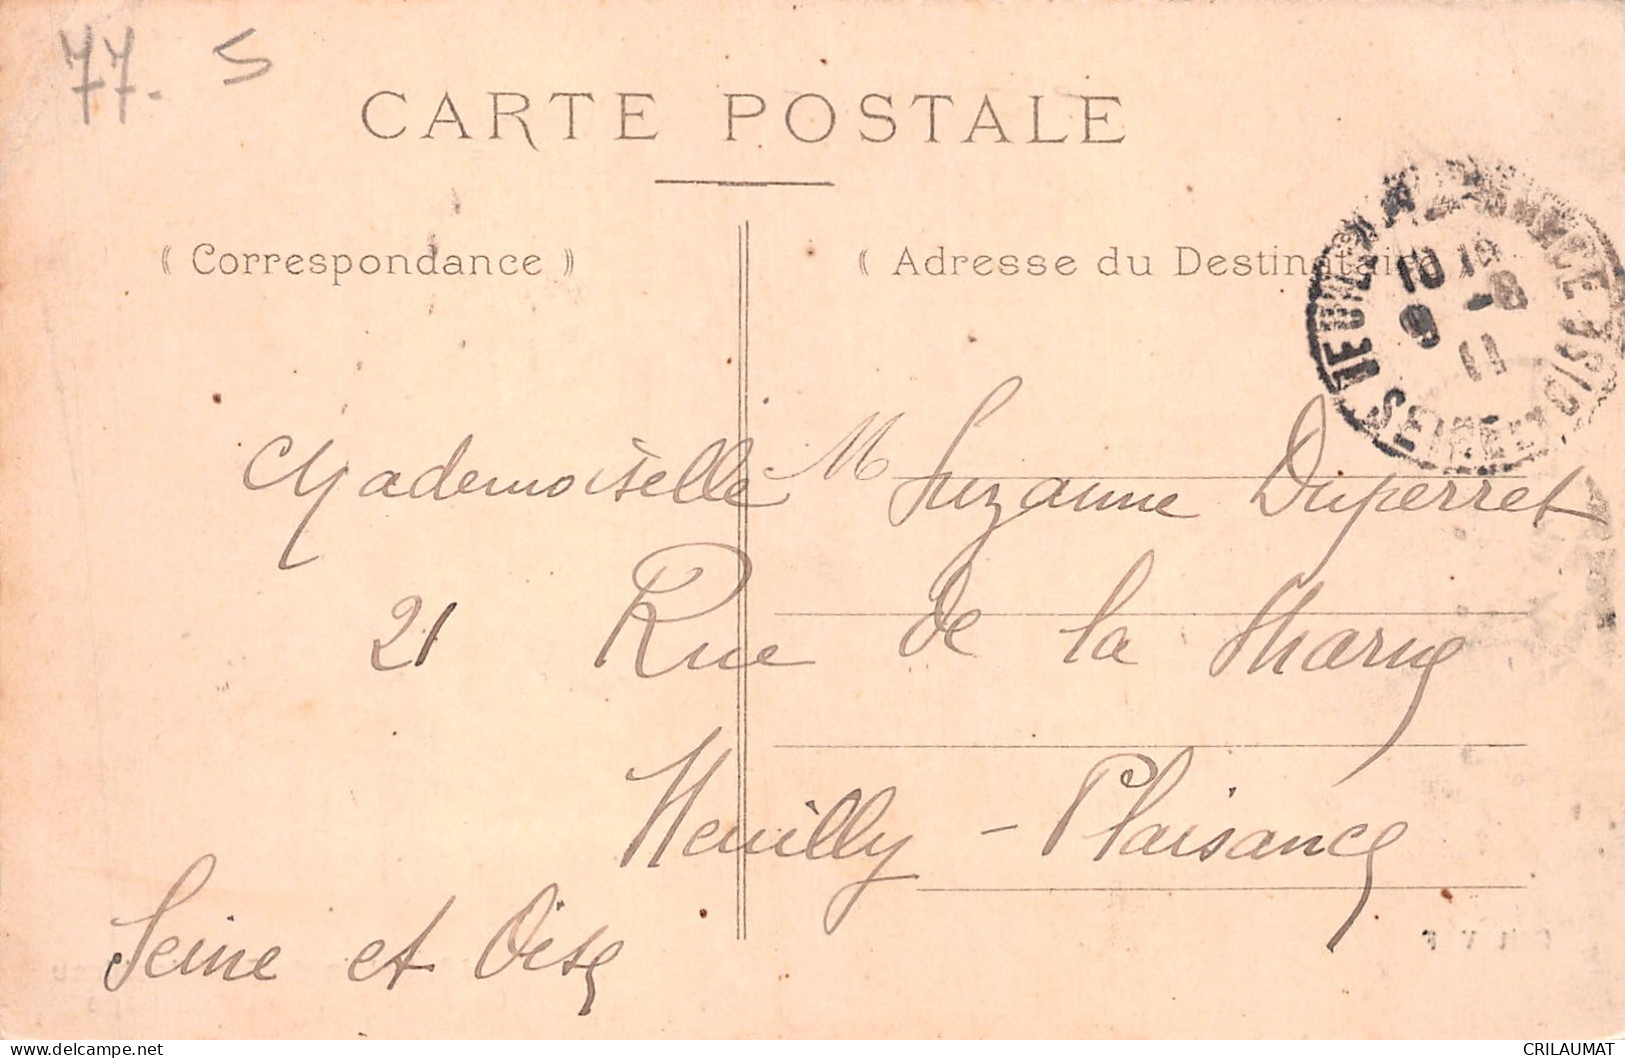 77. S
CARTE POSTALE
( Correspondance )
( Adresse du Destinataire
10 19
9 -8
11
SEINE ET OISE
Mademoiselle M Suzanne Duperret
21 Rue de la Marne
Neuilly - Plaisance
Seine et Oise
CRILAUMAT